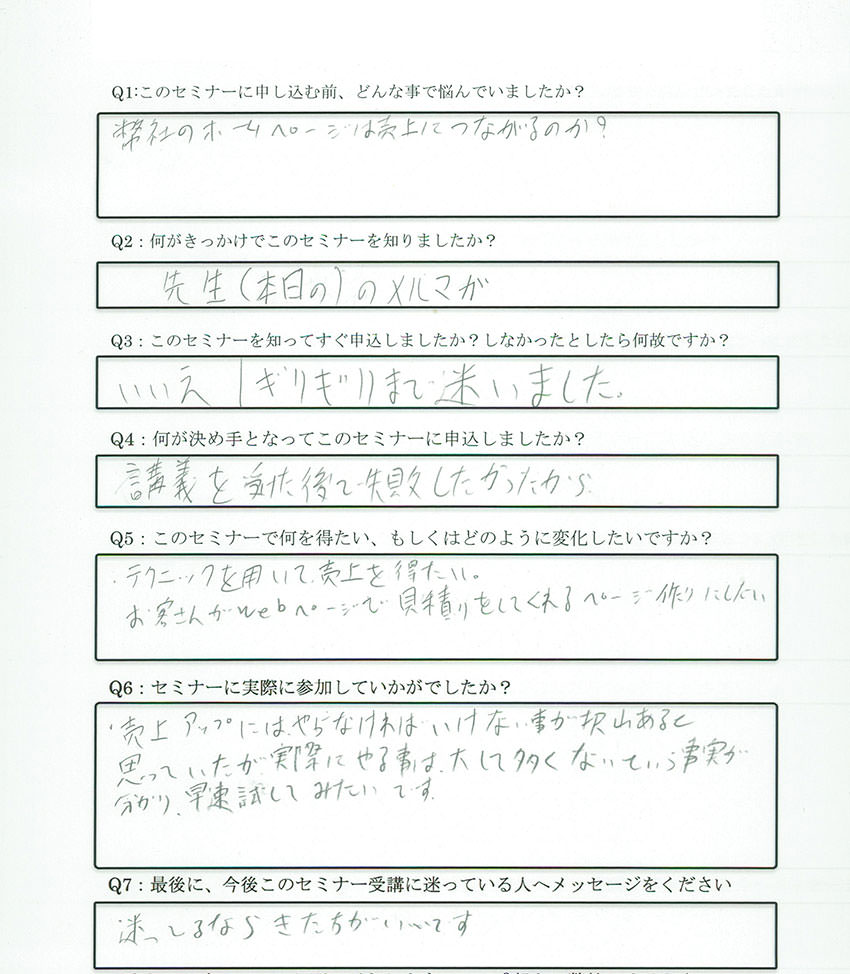 Q1:このセミナーに申し込む前、どんな事で悩んでいましたか？
弊社のホームページは売上につながるのか？
Q2：何がきっかけでこのセミナーを知りましたか？
先生(本日の)のメルマガ
Q3：このセミナーを知ってすぐ申込しましたか？しなかったとしたら何故ですか？
いいえ ギリギリまで迷いました。
Q4：何が決め手となってこのセミナーに申込しましたか？
講義を受けた後で失敗したかったから
Q5：このセミナーで何を得たい、もしくはどのように変化したいですか？
・テクニックを用いて、売上を得たい。
お客さんがwebページで見積りをしてくれるページ作りにしたい
Q6：セミナーに実際に参加していかがでしたか？
・売上アップには、やらなければいけない事が沢山あると
思っていたが実際にやる事は、大して多くないという事実が
分かり、早速試してみたいです。
Q7：最後に、今後このセミナー受講に迷っている人へメッセージをください
迷ってるならきたほうがいいです